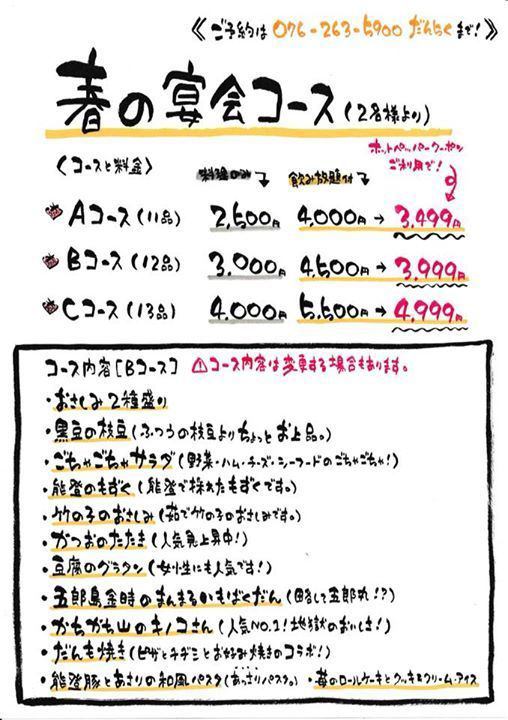 《ご予約は 076-263-5900 だんらくまで!》
春の宴会コース(2名様より)
ホットペッパークーポン
ご利用で!
〈コースと料金〉 料理のみ 飲み放題付
Aコース(11品) 2,500円 4,000円→3,499円
Bコース(12品) 3,000円 4,500円→3,999円
Cコース(13品) 4,000円 5,500円→4,999円
コース内容[Bコース] ⚠コース内容は変更する場合もあります。
・おさしみ2種盛り
・黒豆の枝豆(ふつうの枝豆よりちょっとお上品。)
・ごちゃごちゃサラダ(野菜・ハム・チーズ・シーフードのごちゃごちゃ!)
・能登のもずく(能登で採れたもずくです。)
・竹の子のおさしみ(茹で竹の子のおさしみです。)
・かつおのたたき(人気急上昇中!)
・豆腐のグラタン(女性にも人気です!)
・五郎島金時のまんまるいもばくだん(略して五郎丸!?)
・かちかち山のキノコさん(人気NO.1!地獄のおいしさ!)
・だんも焼き(ピザとチヂミとお好み焼きのコラボ!)
・能登豚とあさりの和風パスタ(あっさりパスタ。) ・苺のロールケーキとクッキー&クリームアイス